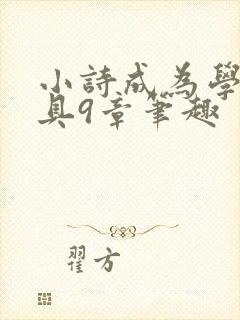 小詩成為學
具9章筆趣
翟方